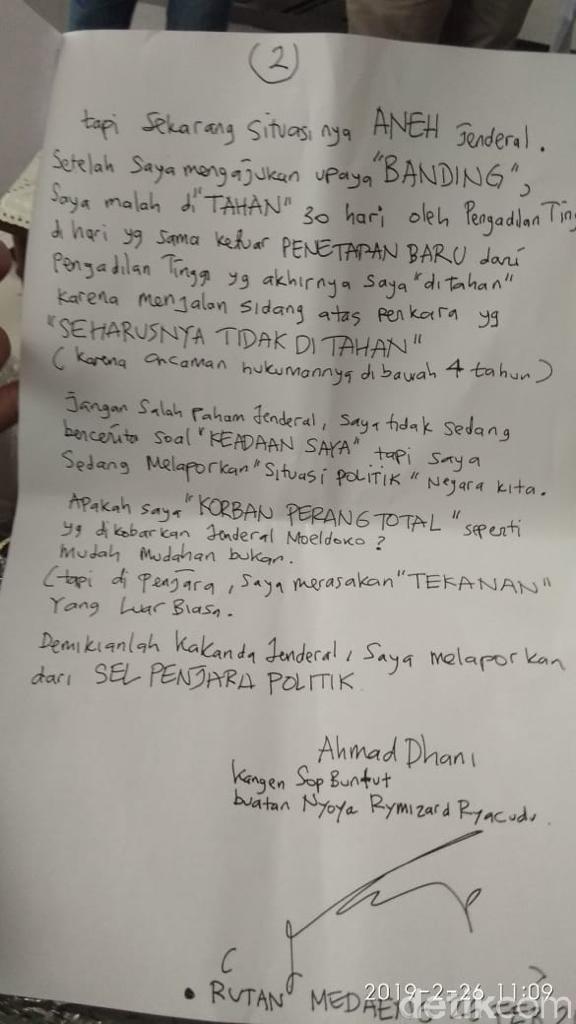 (2)
tapi Sekarang Situasinya ANEH Jenderal.
Setelah Saya mengajukan upaya "BANDING",
Saya malah di "TAHAN" 30 hari oleh Pengadilan Ting
di hari yg sama keluar PENETAPAN BARU dari
Pengadilan Tinggi yg akhirnya saya "ditahan"
karena menjalan sidang atas perkara yg
"SEHARUSNYA TIDAK DITAHAN"
(karena ancaman hukumannya dibawah 4 tahun)
Jangan Salah paham Jenderal, saya tidak sedang
bercerita soal "KEADAAN SAYA" tapi saya
Sedang Melaporkan "Situasi POLITIK" Negara kita.
Apakah saya "KORBAN PERANG TOTAL" seperti
yg dikobarkan Jenderal Moeldoko?
Mudah mudahan bukan.
(tapi di penjara, saya merasakan "TEKANAN"
Yang Luar Biasa.
Demikianlah Kakanda Jenderal, Saya melaporkan
dari SEL PENJARA POLITIK.
Ahmad Dhani
Kangen Sop Buntut
buatan Nyoya Rymizard Ryacudu.
• RUTAN MEDAENG
2019-2-26 11:09
detikcom